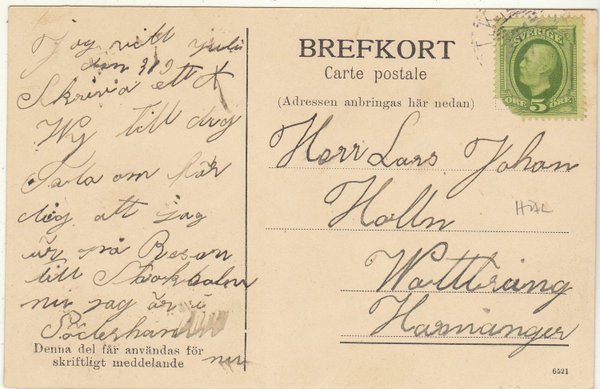 Jag vill
den 3/9
Skriva ett
Wy till dig
Tala om för
dig att jag
är på Resan
till Stockholm
nu jag är i
Söderhamn
nu
Denna del får användas för
skriftligt meddelande
BREFKORT
Carte postale
(Adressen anbringas här nedan)
SVERIGE
ÖRE 5 ÖRE
Herr Lars Johan
Holln
Wattlång
Harmånger
HÄL
6521